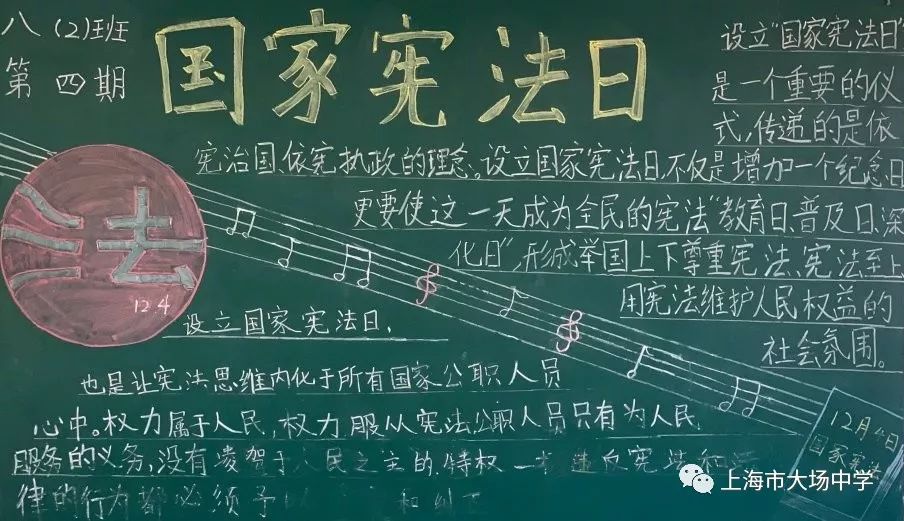 八(2)班
第四期
国家宪法日
设立"国家宪法日"
是一个重要的仪
式,传递的是依
宪治国、依宪执政的理念。设立国家宪法日,不仅是增加一个纪念日
更要使这一天成为全民的宪法"教育日、普及日、深
化日",形成举国上下尊重宪法、宪法至上
用宪法维护人民权益的
社会氛围。
法
12.4
设立国家宪法日,
也是让宪法思维内化于所有国家公职人员
心中。权力属于人民,权力服从宪法公职人员只有为人民
服务的义务,没有凌驾于人民之上的特权一切违反宪法和法
律的行为都必须予以 和纠正
12月4日
国家宪法
上海市大场中学